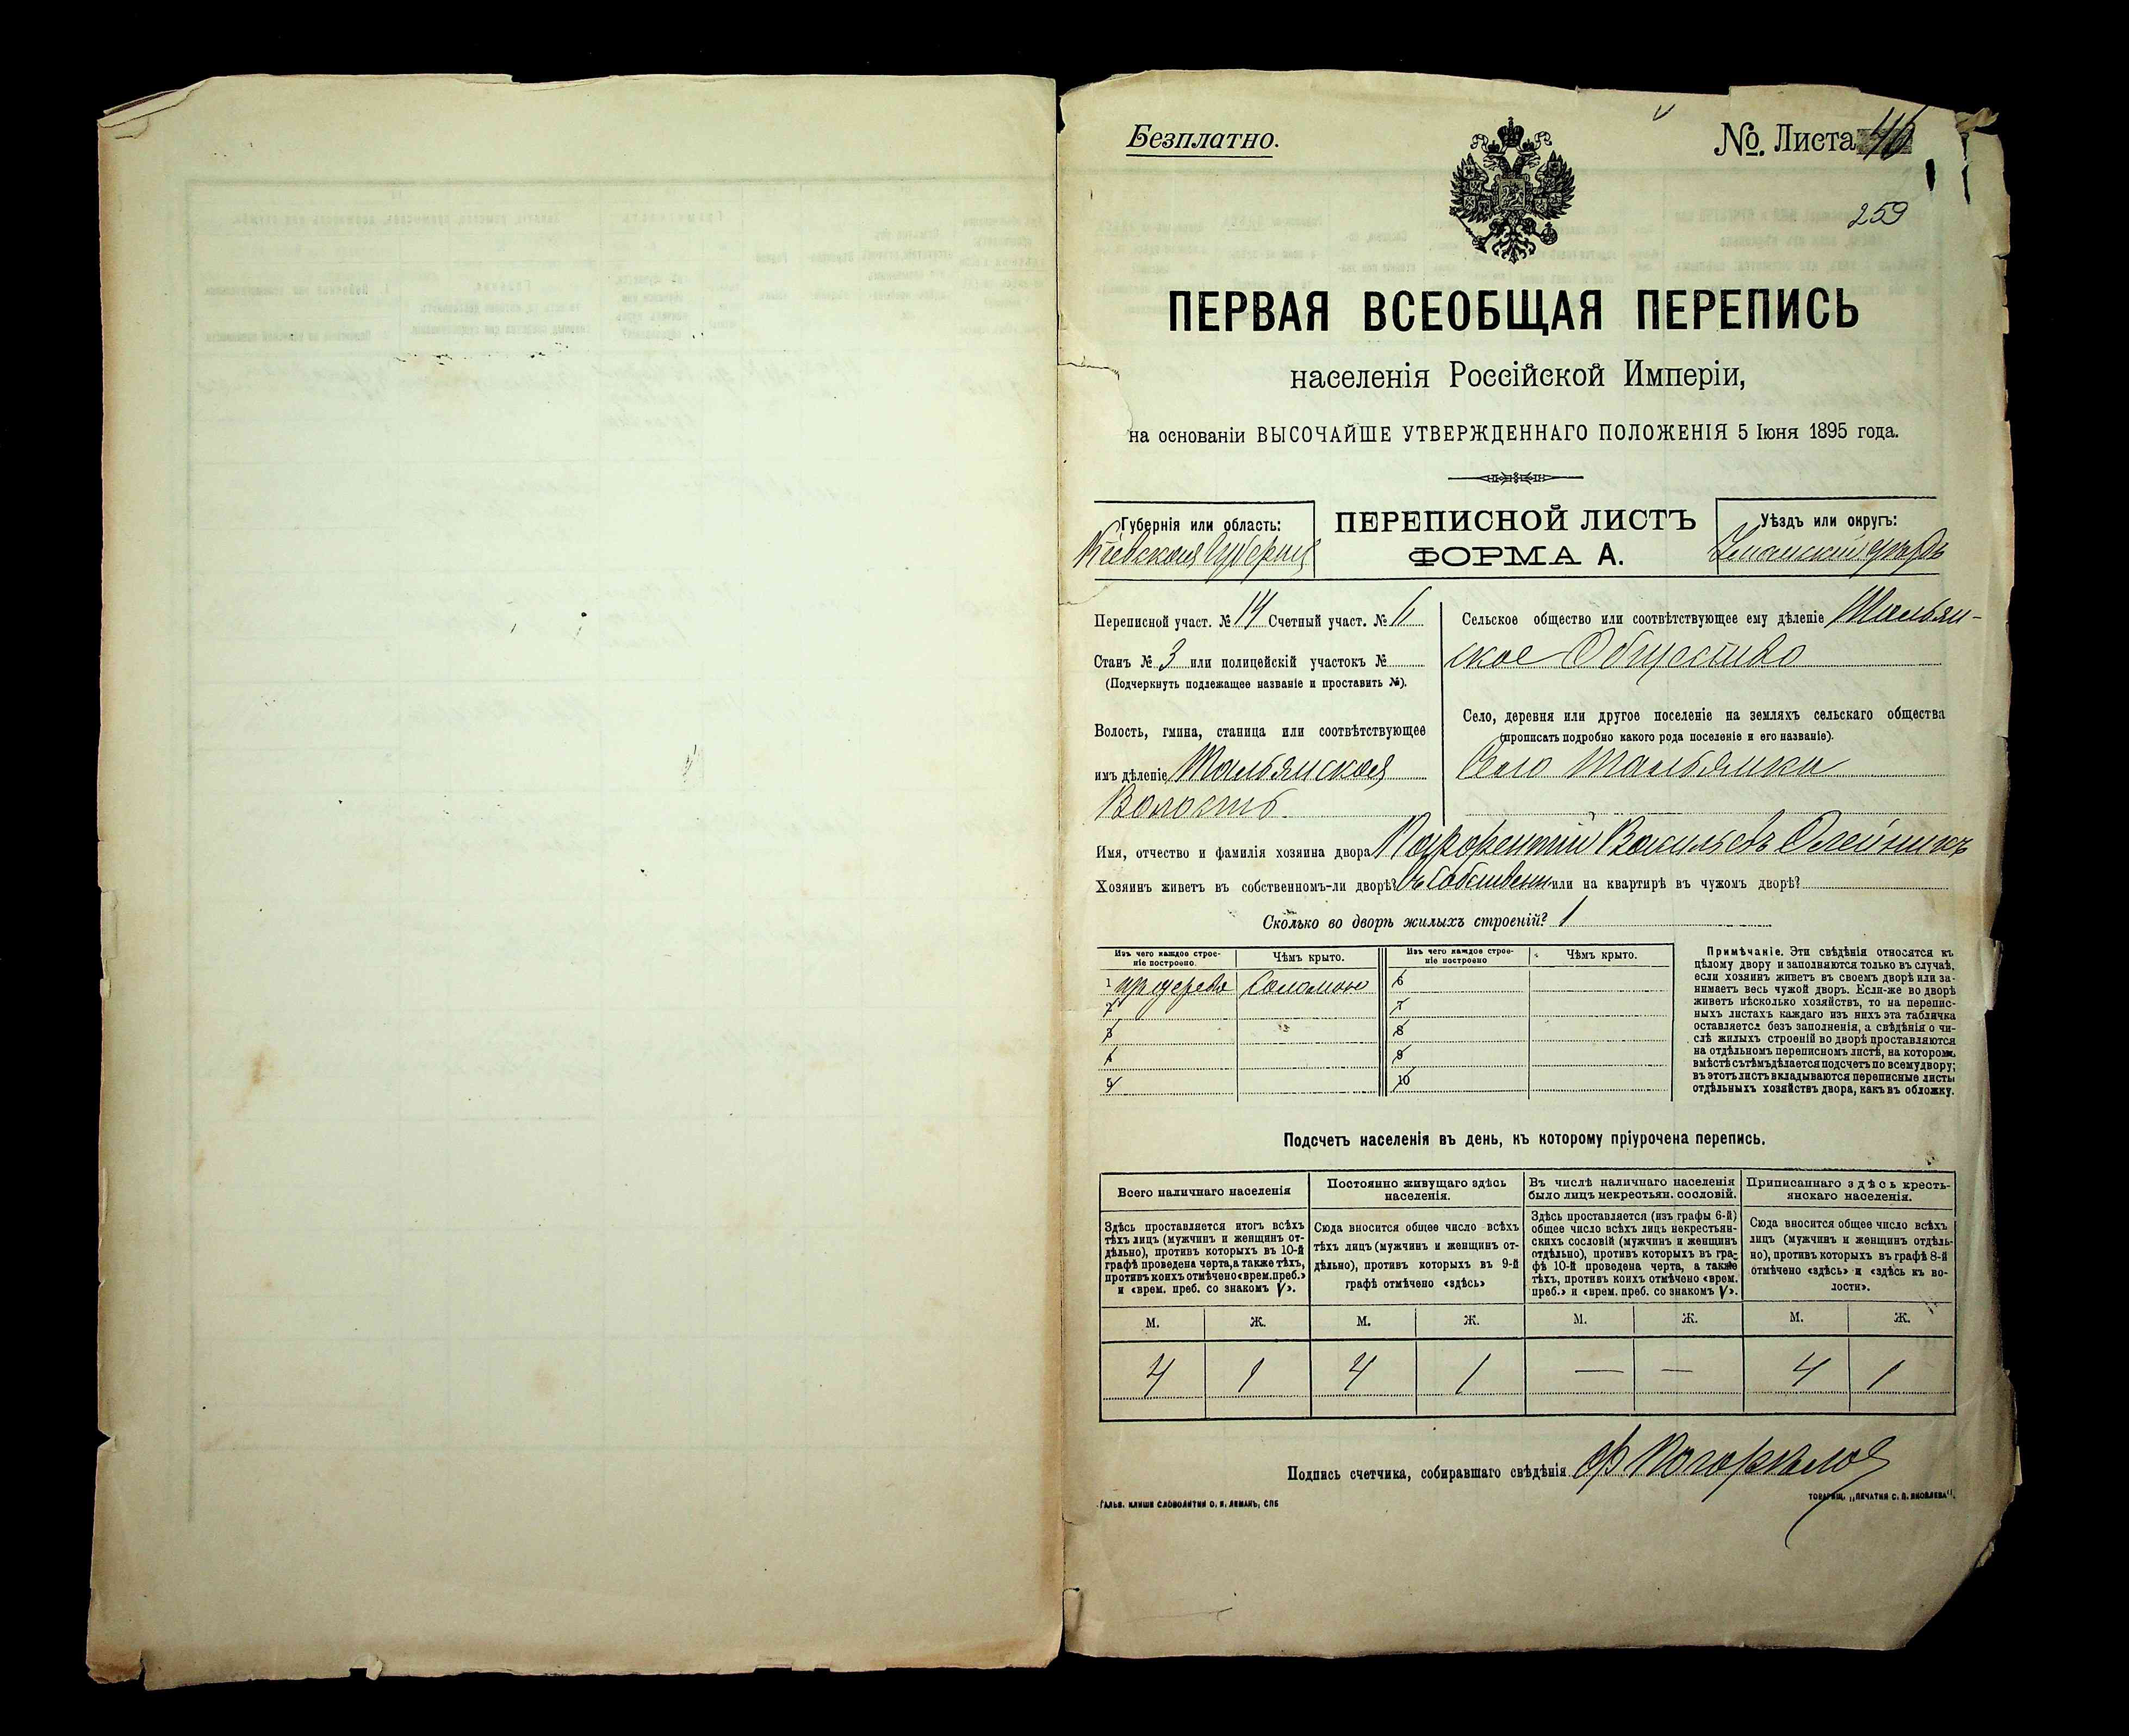 Безплатно.
№. Листа 46
259
ПЕРВАЯ ВСЕОБЩАЯ ПЕРЕПИСЬ
населенія Россійской Имперіи,
на основаніи ВЫСОЧАЙШЕ УТВЕРЖДЕННАГО ПОЛОЖЕНІЯ 5 Іюня 1895 года.
Губернія или область:
Кіевская Губернія
ПЕРЕПИСНОЙ ЛИСТЪ
ФОРМА А.
Уѣздъ или округъ:
Уманскій уѣздъ
Переписной участ. № 14 Счетный участ. № 11
Станъ № 3 или полицейскій участокъ №
(Подчеркнуть подлежащее названіе и проставить №).
Волость, гмина, станица или соотвѣтствующее
имъ дѣленіе Тальянская
Волость
Сельское общество или соотвѣтствующее ему дѣленіе Тальян-
ское Общество
Село, деревня или другое поселеніе на земляхъ сельскаго общества
(прописать подробно какого рода поселеніе и его названіе).
Село Тальянки
Имя, отчество и фамилія хозяина двора Парфентій Васильевъ Олейникъ
Хозяинъ живетъ въ собственномъ-ли дворѣ? въ собствен или на квартирѣ въ чужомъ дворѣ?
Сколько во дворѣ жилыхъ строеній? 1
Изъ чего каждое строе-
ніе построено.
Чѣмъ крыто.
Изъ чего каждое строе-
ніе построено
Чѣмъ крыто.
1 изъ дерева Соломою 6
2 7
3 8
4 9
5 10
Примѣчаніе. Эти свѣдѣнія относятся къ
цѣлому двору и заполняются только въ случаѣ,
если хозяинъ живетъ въ своемъ дворѣ или за-
нимаетъ весь чужой дворъ. Если-же во дворѣ
живетъ нѣсколько хозяйствъ, то на перепис-
ныхъ листахъ каждаго изъ нихъ эта табличка
оставляется безъ заполненія, а свѣдѣнія о чи-
слѣ жилыхъ строеній во дворѣ проставляются
на отдѣльномъ переписномъ листѣ, на которомъ
вмѣстѣ съ тѣмъ дѣлается подсчетъ по всему двору;
въ этотъ листъ вкладываются переписные листы
отдѣльныхъ хозяйствъ двора, какъ въ обложку.
Подсчетъ населенія въ день, къ которому пріурочена перепись.
Всего наличнаго населенія
Здѣсь проставляется итогъ всѣхъ
тѣхъ лицъ (мужчинъ и женщинъ от-
дѣльно), противъ которыхъ въ 10-й
графѣ проведена черта, а также тѣхъ,
противъ коихъ отмѣчено «врем. преб.»
и «врем. преб. со знакомъ V».
Постоянно живущаго здѣсь
населенія.
Сюда вносится общее число всѣхъ
тѣхъ лицъ (мужчинъ и женщинъ от-
дѣльно), противъ которыхъ въ 9-й
графѣ отмѣчено «здѣсь»
Въ числѣ наличнаго населенія
было лицъ некрестьян. сословій.
Здѣсь проставляется (изъ графы 6-й)
общее число всѣхъ лицъ некрестьян-
скихъ сословій (мужчинъ и женщинъ
отдѣльно), противъ которыхъ въ гра-
фѣ 10-й проведена черта, а также
тѣхъ, противъ коихъ отмѣчено «врем.
преб.» и «врем. преб. со знакомъ V».
Приписаннаго здѣсь кресть-
янскаго населенія.
Сюда вносится общее число всѣхъ
лицъ (мужчинъ и женщинъ отдѣль-
но), противъ которыхъ въ графѣ 8-й
отмѣчено «здѣсь» и «здѣсь къ во-
лости».
М. Ж. М. Ж. М. Ж. М. Ж.
4 1 4 1 — — 4 1
Подпись счетчика, собиравшаго свѣдѣнія Ф Погорѣлов
ГАЛЬВ. КЛИШЕ СЛОВОЛИТНИ О. И. ЛЕМАНЪ, СПБ
ТОВАРИЩ. „ПЕЧАТНЯ С. П. ЯКОВЛЕВА".